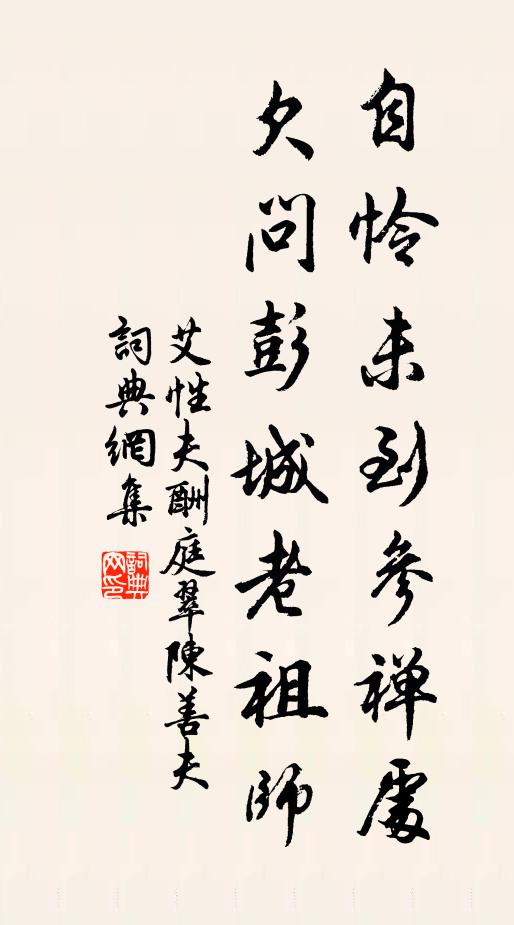 自怜未到参禅处
欠问彭城老祖师
艾性夫酬庭翠陳善夫
詞典網集
詞典网印